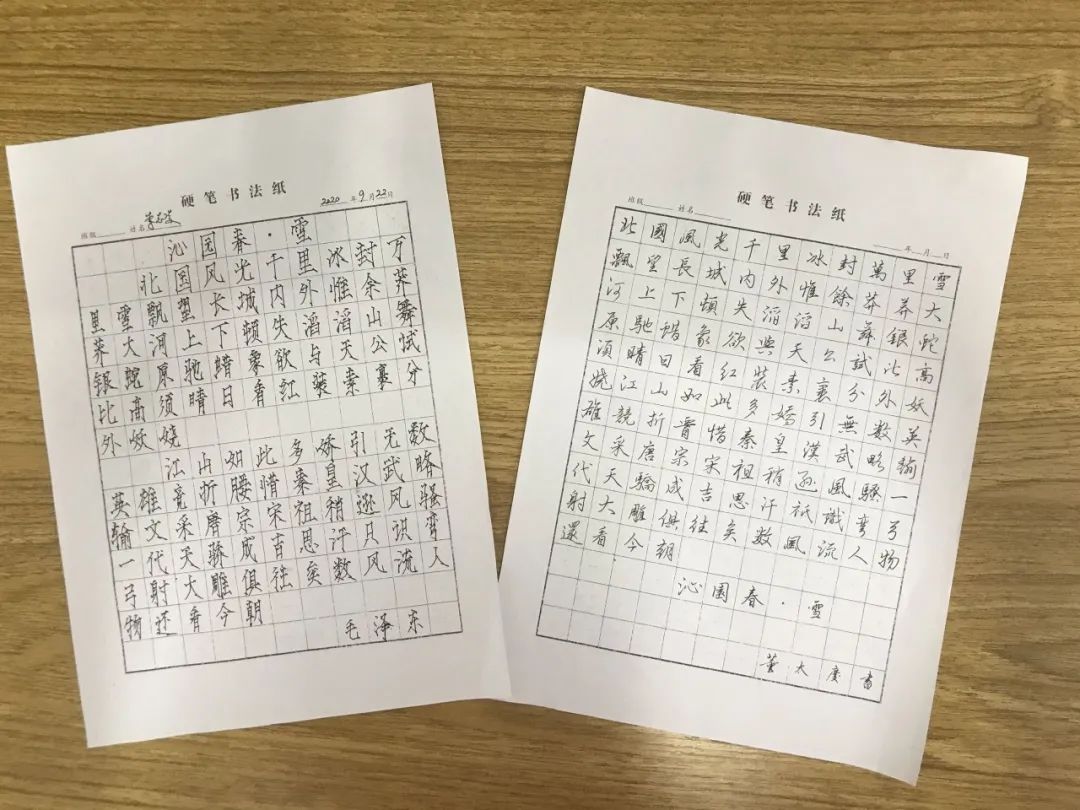 硬笔书法纸
班级 姓名 2020年9月22日
沁园春·雪
北国风光千里冰封万
里雪飘望长城内外惟余莽
莽大河上下顿失滔滔山舞
银蛇原驰蜡象欲与天公试
比高须晴日看红装素裹分
外妖娆
江山如此多娇引无数
英雄竞折腰惜秦皇汉武略
输文采唐宗宋祖稍逊风骚
一代天骄成吉思汗只识弯
弓射大雕俱往矣数风流人
物还看今朝
毛泽东
硬笔书法纸
班级 姓名 年 月 日
北國風光千里冰封萬里雪
飄望長城内外惟餘莽莽大
河上下頓失滔滔山舞銀蛇
原馳蜡象欲與天公試比高
須晴日看红裝素裹分外妖
嬈江山如此多嬌引無數英
雄競折惜秦皇漢武略輸
文采唐宗宋祖稍逊風騷一
代天驕成吉思汗衹識彎弓
射大雕俱往矣數風流人物
還看今朝
沁園春·雪
董太慶書